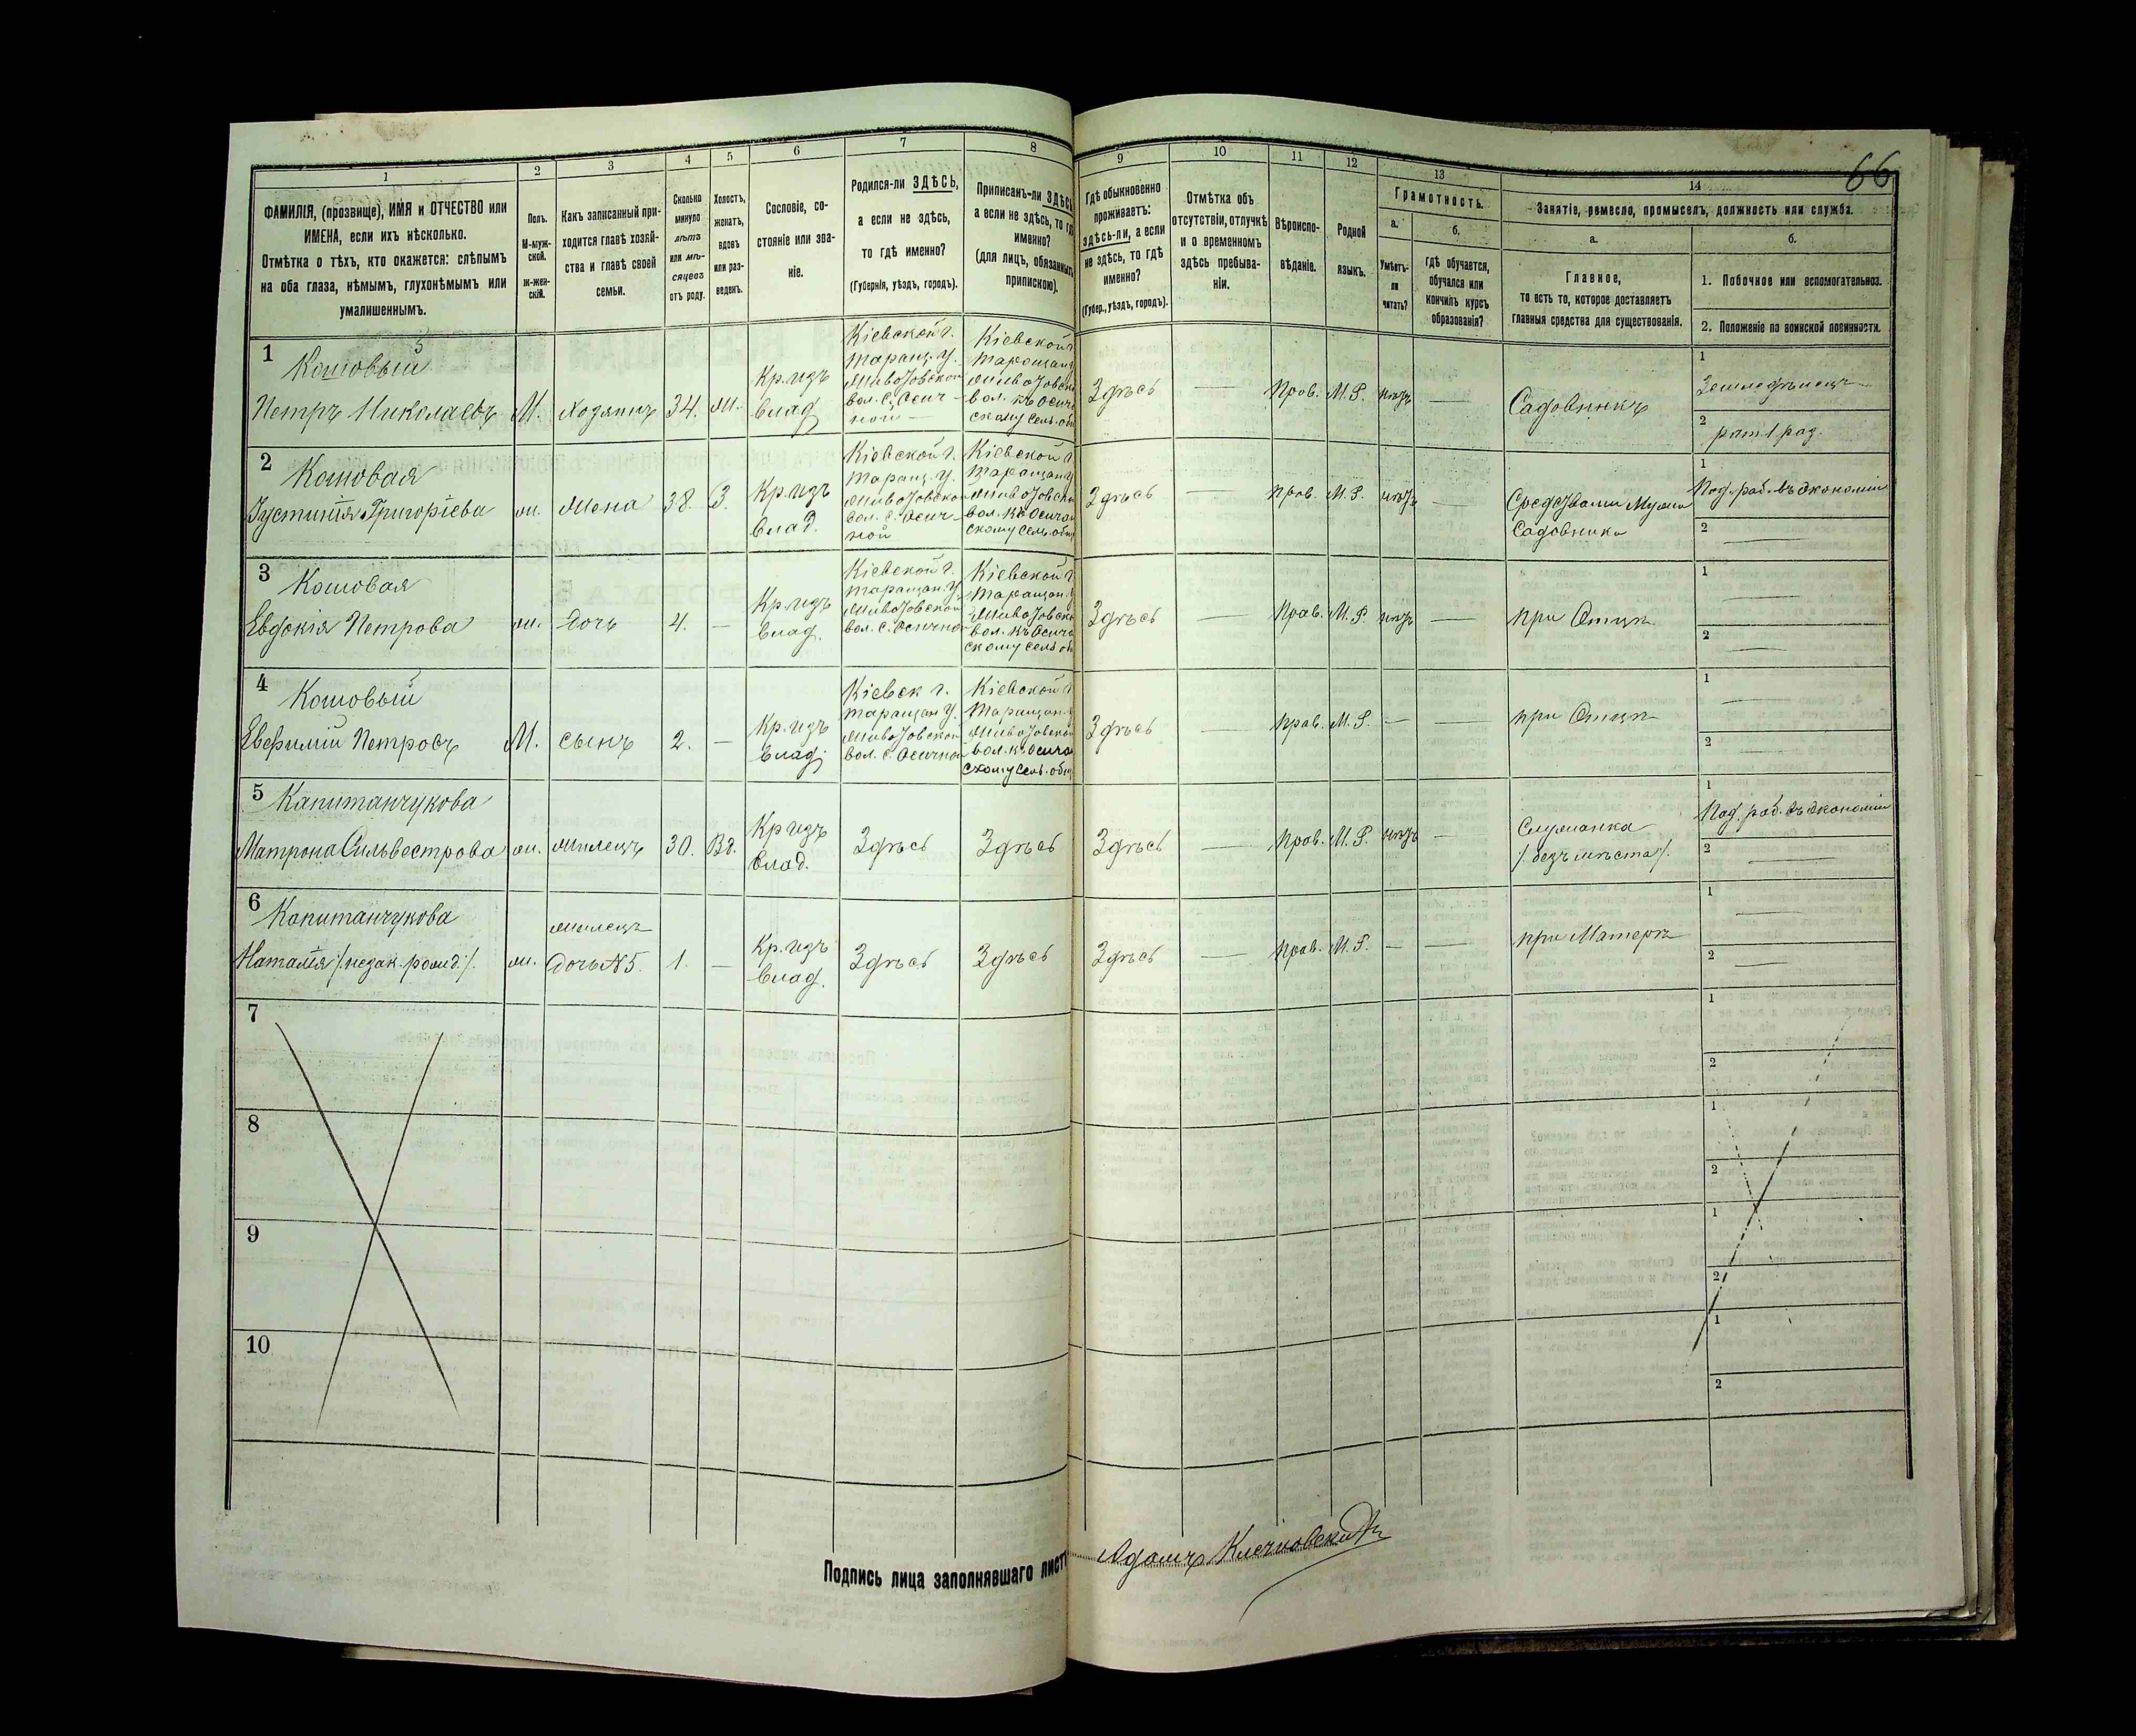 66
1
2
3
4
5
6
7
8
9
10
11
12
13
14
ФАМИЛІЯ, (прозвище), ИМЯ и ОТЧЕСТВО или
ИМЕНА, если ихъ нѣсколько.
Отмѣтка о тѣхъ, кто окажется: слѣпымъ
на оба глаза, нѣмымъ, глухонѣмымъ или
умалишеннымъ.
Полъ.
М-муж-
ской.
ж-жен-
скій.
Какъ записанный при-
ходится главѣ хозяй-
ства и главѣ своей
семьи.
Сколько
минуло
лѣтъ
или мѣ-
сяцевъ
отъ роду.
Холостъ,
женатъ,
вдовъ
или раз-
веденъ.
Сословіе, со-
стояніе или зва-
ніе.
Родился-ли ЗДѢСЬ,
а если не здѣсь,
то гдѣ именно?
(Губернія, уѣздъ, городъ).
Приписанъ-ли ЗДѢСЬ
а если не здѣсь, то гдѣ
именно?
(для лицъ, обязанныхъ
припискою).
Гдѣ обыкновенно
проживаетъ:
здѣсь-ли, а если
не здѣсь, то гдѣ
именно?
(Губер., уѣздъ, городъ).
Отмѣтка объ
отсутствіи, отлучкѣ
и о временномъ
здѣсь пребыва-
ніи.
Вѣроиспо-
вѣданіе.
Родной
языкъ.
Грамотность.
а.
Умѣетъ-
ли
читать?
б.
гдѣ обучается,
обучался или
кончилъ курсъ
образованія?
Занятіе, ремесло, промыселъ, должность или служба.
а.
Главное,
то есть то, которое доставляетъ
главныя средства для существованія.
б.
1. Побочное или вспомогательное.
2. Положеніе по воинской повинности.
1
Кошовый
Петръ Николаевъ
М.
хозяинъ
34.
Ж.
Кр. изъ
влад
Кіевской г.
Таращ. у.
вол. с. Осич-
ной
Кіевской г
Таращан
вол. къ Осича
скому сель. общ
Здѣсь
—
Прав.
М. Р.
нѣтъ
—
Садовникъ
1
Земледѣлецъ
2
рат. 1 раз.
2
Кошовая
Іустинія Григоріева
ж.
жена
38.
З.
Кр. изъ
влад.
Кіевской г.
Таращ. у.
вол. с. Осич-
ной
Кіевской г
Таращан у
вол. къ Осича
скому сель. общ
Здѣсь
—
прав.
М. Р.
нѣтъ
—
Средствами мужа
садовника
1
Под. раб. въ экономіи
2
—
3
Кошовая
Евдокія Петрова
ж.
дочь
4.
—
Кр. изъ
влад.
Кіевской г.
Таращан. у.
вол. с. Осична
Кіевской г
Таращан.
вол. къ Осича
скому сель об
Здѣсь
—
Прав.
М. Р.
нѣтъ
—
при Отцѣ
1
—
2
—
4
Кошовый
Евфимій Петровъ
М.
сынъ
2.
—
Кр. изъ
влад.
Кіевск г.
Таращан у.
вол. с. Осична
Кіевской г
Таращан.
вол. къ Осича
скому сель. общ
Здѣсь
—
прав.
М. Р.
—
—
при Отцѣ
1
—
2
—
5
Капитанчукова
Матрона Сильвестрова
ж.
жилецъ
30.
Вд.
Кр изъ
влад.
Здѣсь
Здѣсь
Здѣсь
—
прав.
М. Р.
нѣтъ
—
Служанка
/. безъ мѣста /.
1
Под. раб. въ экономіи
2
—
6
Капитанчукова
Наталія /. незак. рожд. /.
ж.
жилецъ
дочь № 5.
1.
—
Кр. изъ
влад.
Здѣсь
Здѣсь
Здѣсь
—
прав.
М. Р.
—
—
при Матерѣ
1
—
2
—
7
1
2
8
1
2
9
1
2
10
1
2
Подпись лица заполнявшаго листъ
Адамъ